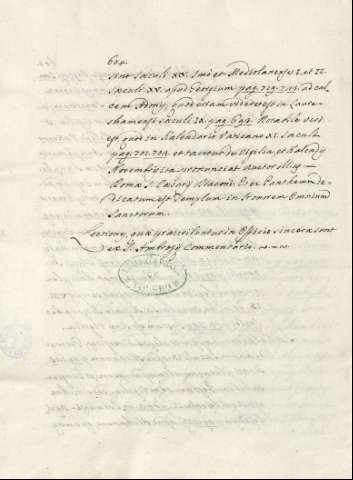 604.
sint sæculi XI. sive et Mediolanenses 2. et 22.
sæculi XI. apud Georgium pag. 719. 744. ad cal
cem Adonis, quod etiam videre est in Laures
hamensi sæculi IX. pag. 692. Notabile vero
est quod in Kalendario Vaticano XI. sæculi
pag. 701. 704. et tacetur de Vigilia, et Kalendis
Novembris ita pronunciat auctor illius
Romæ S. Cæsarii Diaconi. Et ex Pantheum de
dicatum est Templum in Honorem Omnium
Sanctorum.
Lectiones, quæ præscribuntur in Officio sincera sunt
ex S. Ambrosii Commentariis.